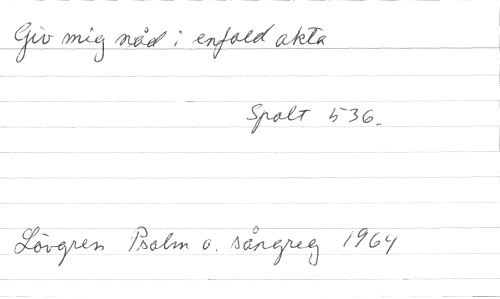 Giv mig nåd i enfald akta
Spalt 536.
Lövgren Psalm o. sångreg 1964